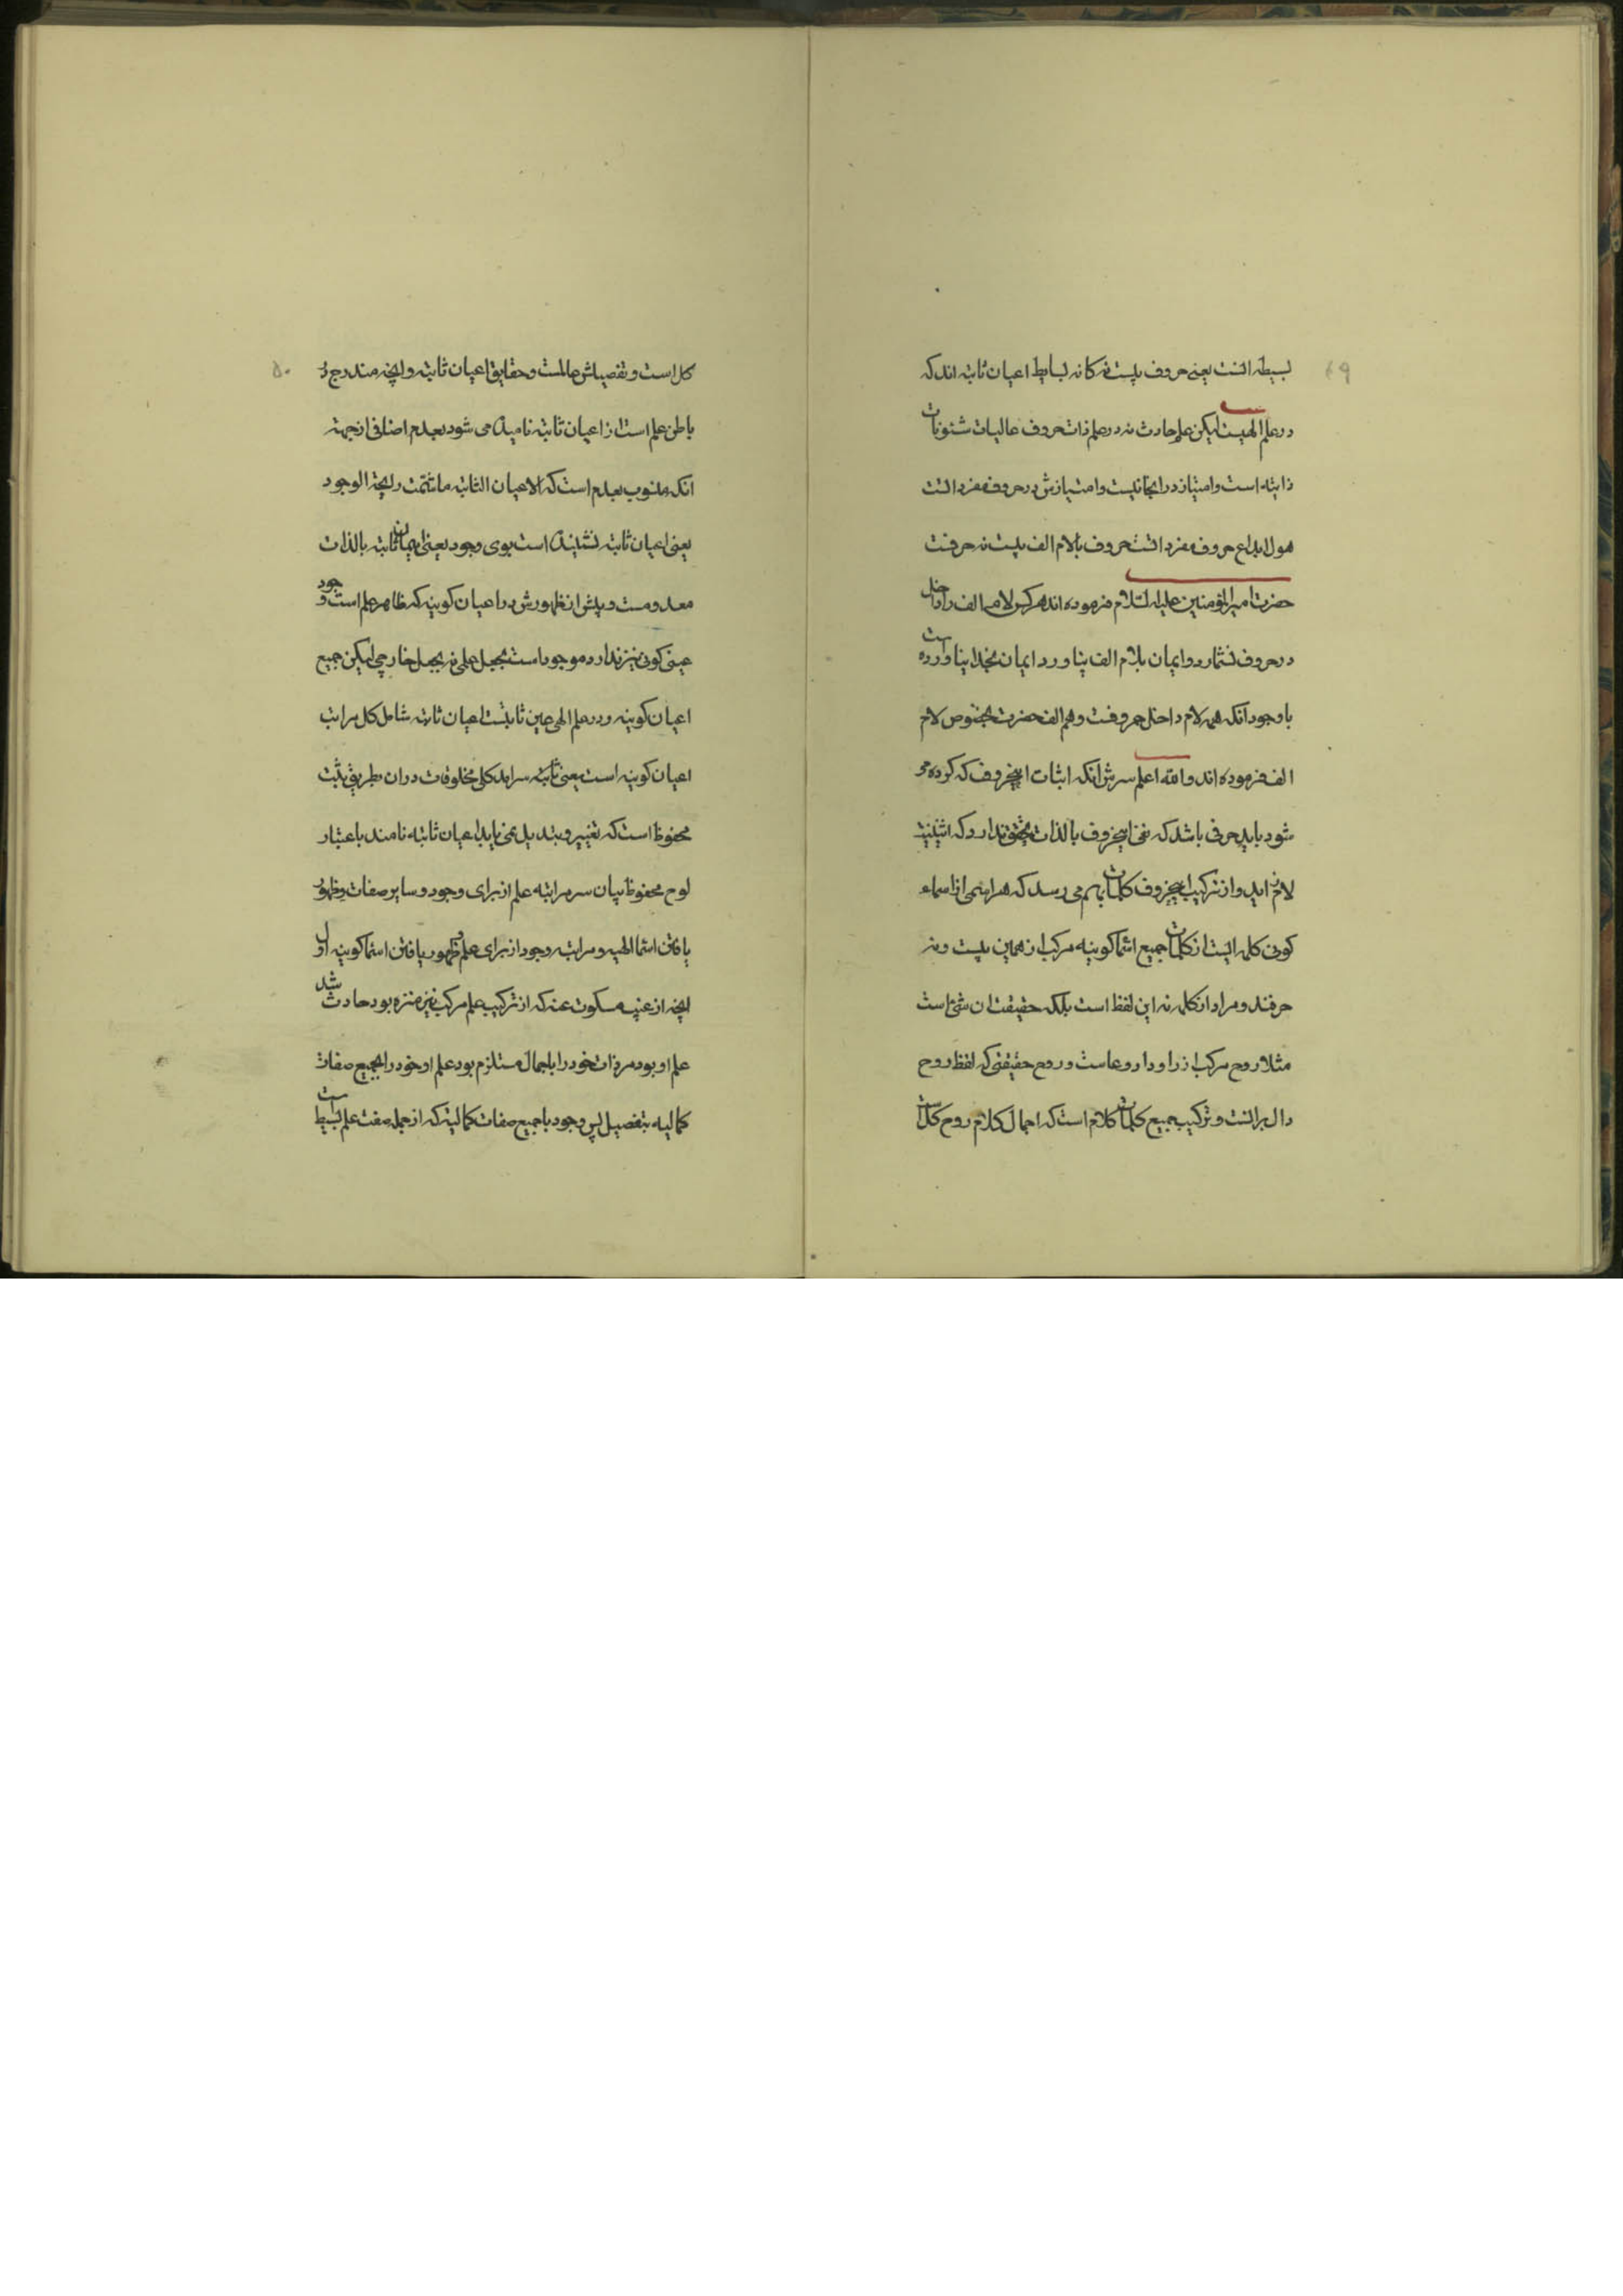 ۴۹
بسیطه انست یعنی حروف بیست نه کانه بسایط اعیان ثابته اند که
در علم الهیست لیکن علم حادث نه در علم ذات حروف عالیات شئونات
ذاتیه است وامتیاز در انجا نیست وامتیازش در حروف مفرد انست
هو لابداع حروف مفرد انست حروف بالام الف بیست نه حرفست
حضرت امیرالمؤمنین علیه السّلام فرموده اند هر کس لام الف را داخل
در حروف نشمارد وایمان بلام الف نیاورد ایمان بخدا نیاورده است
باوجود انکه هم لام داخل حروفست وهم الف حضرت بخصوص لام
الف فرموده اند والله اعلم سرش انکه اثبات اینحروف که کرده
شود باید حرفی باشد که نفی اینحروف بالذات تحقق ندارد که اثنینیت
لازم اید واز ترکیب اینحروف کلمات بهم می رسد که هر اسمی از اسماء
کونی کلمه ایست از کلمات جمیع اسما کونیه مرکب از همین بیست ونه
حرفند ومراد از کلمه نه این لفظ است بلکه حقیقت ان شئ است
مثلا روح مرکب از را و واو وحاست وروح حقیقتی که لفظ روح
دال بر انست وترکیب جمیع کلمات کلام است که اجمال کلام روح کل است
۵۰
کل است وتفصیلش عالمست وحقایق اعیان ثابته وانچه مندرج در
باطن علم است از اعیان ثابته نامیده می شود بعدم اضافی از جهة
انکه منسوب بعدم است که الاعیان الثابته ماشمّت رایحة الوجود
یعنی اعیان ثابته نشنیده است بوی وجود یعنی اعیان ثابته بالذات
معدومست وپیش از ظهورش در اعیان کونیه که ظاهر علم است وجود
عینی کونی نیز ندارد موجود است بجعل علمی نه بجعل خارجی لیکن جمیع
اعیان کونیه ودر علم الهی عین ثابتست اعیان ثابته شامل کل مراتب
اعیان کونیه است یعنی ثابته سراید کلی مخلوقات در ان بطریق ثبت
محفوظ است که تغییر وتبدیل نمی یابد اعیان ثابته نامند باعتبار
لوح محفوظ بیان سر مراتبه علم از برای وجود وسایر صفات وظهور
یافتن اسما الهیه ومراتبه وجود از برای علم وظهور یافتن اسما کونیه اول
انچه از غیب مسکوت عنه که از ترکیب علم مرکب نیز منزه بود حادث شد
علم او بود مر ذات خود را باجمال مستلزم بود علم او خود را بجمیع صفات
کمالیه بتفصیل پس وجود با جمیع صفات کمالیه که از جمله صفت علم بسیط است